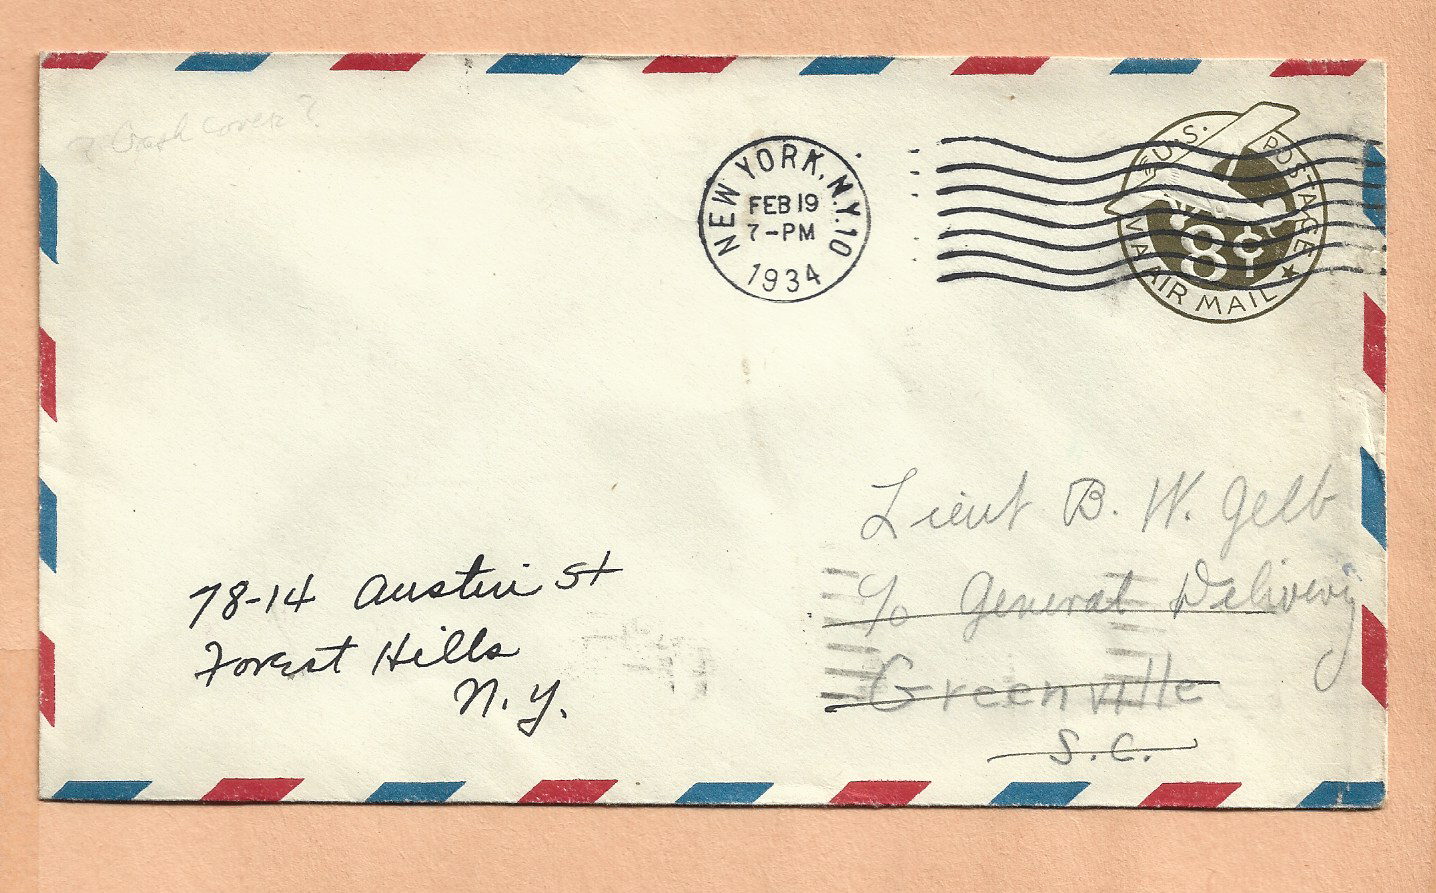 ? Crash cover?
NEW YORK, N.Y. 10
FEB 19
7-PM
1934
U.S. POSTAGE
8¢
VIA AIR MAIL
Lieut B. W. Gelb
c/o General Delivery
Greenville
S.C.
78-14 Austin St
Forest Hills
N.Y.